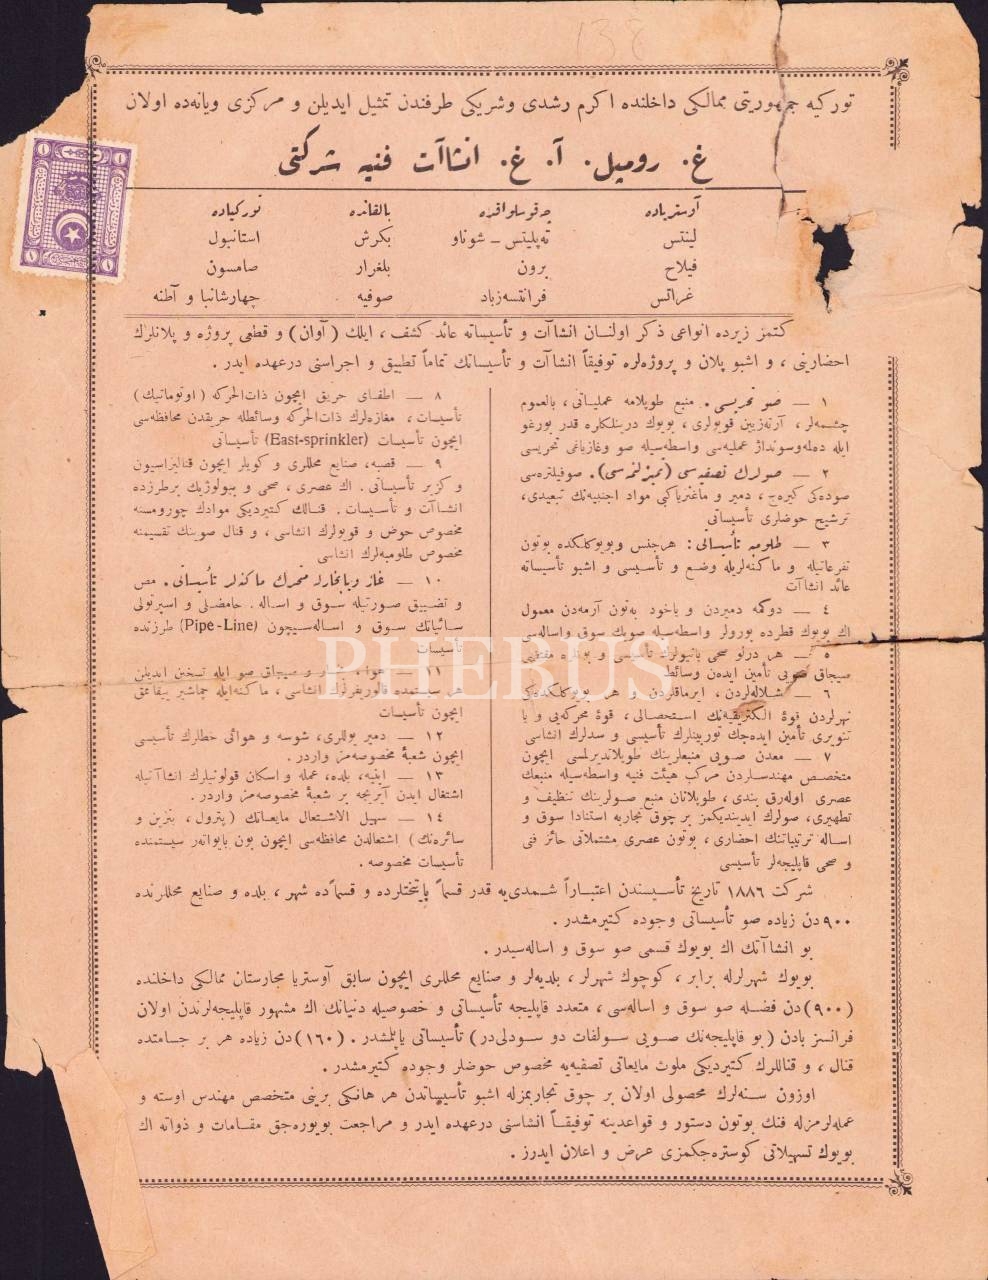 138
توركیه جمهوریتی ممالكی داخلنده اكرم رشدی وشریكی طرفندن تمثیل ایدیلن و مركزی ویانه‌ده اولان
غ. رومپل. آ. غ. انشاآت فنیه شركتی
آوستریاده چه‌قوسلواقده بالقانده توركیاده
لینتس ته‌پلیتس ــ شوناو بكرش استانبول
فیلاح برون بلغراد صامسون
غراتس فرانتسه‌زباد صوفیه چهارشانبا و آطنه
كتمز زیرده انواعی ذكر اولنان انشاآت و تأسیساته عائد كشف ، ایلك (آوان) و قطعی پروژه و پلانلرك
احضارینی ، و اشبو پلان و پروژه‌لره توفیقاً انشاآت و تأسیساتك تماماً تطبیق و اجراسنی درعهده ایدر .
١ — صو تحریسی . منبع طوپلامه عملیاتی ، بالعموم
چشمه‌لر ، آرته‌زیین قویولری ، بویوك درینلكلره قدر بورغو
ایله ده‌لمه وسونداژ عملیه‌سی واسطه‌سیله صو وغازیاغی تحریسی
٢ — صولرك تصفیه‌سی (تمیزلنمه‌سی) . صوفیلتره‌سی
صوده‌كی كیره‌ج ، دمیر و ماغنزیاكبی مواد اجنبیه‌نك تبعیدی ،
ترشیح حوضلری تأسیساتی
٣ — طلومبه تأسیساتی : هرجنس وبویوكلكده بوتون
تفرعاتیله و ماكنه‌لریله وضع و تأسیسی و اشبو تأسیساته
عائد انشاآت
٤ — دوكمه دمیردن و یاخود به‌تون آرمه‌دن معمول
اك بویوك قطرده بورولر واسطه‌سیله صویك سوق واساله‌سی
٥ — هر درلو صحی بانیولرك تأسیسی و بونلره
صیجاق صویی تأمین ایدن وسائط
٦ — شلاله‌لردن ، ایرماقلردن و هر بویوكلكده‌كی
نهرلردن قوهٔ الكتریقیه‌نك استحصالی ، قوهٔ محركه‌یی و یا
تنویری تأمین ایده‌جك توربینلرك تأسیسی و سدلرك انشاسی
٧ — معدن صویی منبعلرینك طوپلاندیریلمسی ایچون
متخصص مهندسلردن مركب هیئت فنیه واسطه‌سیله منبعك
عصری اوله‌رق بندی ، طوپلانان منبع صولرینك تنظیف و
تطهیری ، صولرك ایدیندیكمز بر چوق تجاربه استناداً سوق و
اساله ترتیباتنك احضاری ، بوتون عصری مشتملاتی حائز فنی
و صحی قاپلیجه‌لر تأسیسی
٨ — اطفای حریق ایچون ذات‌الحركه (اوتوماتیك)
تأسیسات ، مغازه‌لرك ذات‌الحركه وسائطله حریقدن محافظه‌سی
ایچون تأسیسات (East-sprinkler) تأسیساتی
٩ — قصبه ، صنایع محللری و كویلر ایچون قنالیزاسیون
و كریز تأسیساتی . اك عصری ، صحی و بیولوژیك برطرزده
انشاآت و تأسیسات . قنالك كتیردیكی موادك چورومسنه
مخصوص حوض و قویولرك انشاسی ، و قنال صوینك تقسیمنه
مخصوص طلومبه‌لرك انشاسی
١٠ — غاز ویابخارله متحرك ماكنه‌لر تأسیساتی . مص
و تضییق صورتیله سوق و اساله . حامضلی و اسپرتولی
سائیاتك سوق و اساله‌سیچون (Pipe-Line) طرزنده
تأسیسات
١١ — هوا ، بخار و صیجاق صو ایله تسخین ایدیلن
هر سیستمده قالوریفرلرك انشاسی ، ماكنه‌ایله چماشیر ییقامق
ایچون تأسیسات
١٢ — دمیر یوللری ، شوسه و هوائی خطلرك تأسیسی
ایچون شعبهٔ مخصوصه‌مز واردر .
١٣ — ابنیه ، بلده ، عمله و اسكان قولونیلرك انشاآتیله
اشتغال ایدن آیریجه بر شعبهٔ مخصوصه‌مز واردر .
١٤ — سهیل الاشتعال مایعاتك (پترول ، بنزین و
سائره‌نك) اشتعالدن محافظه‌سی ایچون سیستمنده
تأسیسات مخصوصه .
شركت ١٨٨٦ تاریخ تأسیسندن اعتباراً شمدی‌یه قدر قسماً پایتختلرده و قسماً ده شهر ، بلده و صنایع محللرنده
٩٠٠ دن زیاده صو تأسیساتی وجوده كتیرمشدر .
بو انشاآتك اك بویوك قسمی صو سوق و اساله‌سیدر .
بویوك شهرلرله برابر ، كوچوك شهرلر ، بلدیه‌لر و صنایع محللری ایچون سابق آوستریا مجارستان ممالكی داخلنده
(٩٠٠) دن فضله صو سوق و اساله‌سی ، متعدد قاپلیجه تأسیساتی و خصوصیله دنیانك اك مشهور قاپلیجه‌لرندن اولان
فرانسز بادن (بو قاپلیجه‌نك صویی سولفات دو سودلی‌در) تأسیساتی یاپلمشدر . (١٦٠) دن زیاده هر بر جسامتده
قنال ، و قناللرك كتیردیكی ملوث مایعاتی تصفیه‌یه مخصوص حوضلر وجوده كتیرمشدر .
اوزون سنه‌لرك محصولی اولان بر چوق تجاربمزله اشبو تأسیساتدن هر هانكی برینی متخصص مهندس اوسته و
عمله‌لرمزله فنك بوتون دستور و قواعدینه توفیقاً انشاسنی درعهده ایدر و مراجعت بویوره‌جق مقامات و ذواته اك
بویوك تسهیلاتی كوستره‌جكمزی عرض و اعلان ایدرز .
PHEBUS